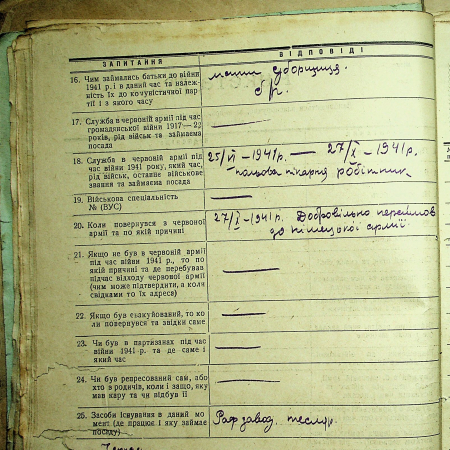 ЗАПИТАННЯ
ВІДПОВІДІ
16. Чим займались батьки до війни
1941 р. і в даний час та належ-
ність їх до комуністичної пар-
тії і з якого часу
мати уборщиця.
б/п.
17. Служба в червоній армії під час
громадянської війни 1917—22
років, рід військ та займаєма
посада
18. Служба в червоній армії під
час війни 1941 року, який час,
рід військ, останнє військове
звання та займаєма посада
25/VI – 1941 р. — 27/X – 1941 р.
польова пікарня робітник
19. Військова спеціальність
№ (ВУС)
20. Коли повернувся з червоної
армії та по якій причині
27/X – 1941 р. Добровільно перейшов
до німецької армії.
21. Якщо не був в червоній армії
під час війни 1941 р., то по
якій причині та де перебував
підчас відходу червоної армії
(чим може підтвердити, а коли
свідками то їх адреса)
22. Якщо був евакуйований, то ко
ли повернувся та звідки саме
23. Чи був в партизанах під час
війни 1941 р. та де саме і
який час
24. Чи був репресований сам, або
хто з родичів, коли і защо, яку
мав кару та чи відбув її
25. Засоби існування в даний мо
мент (де працює і яку займає
посаду)
Раф. завод. тесляр.